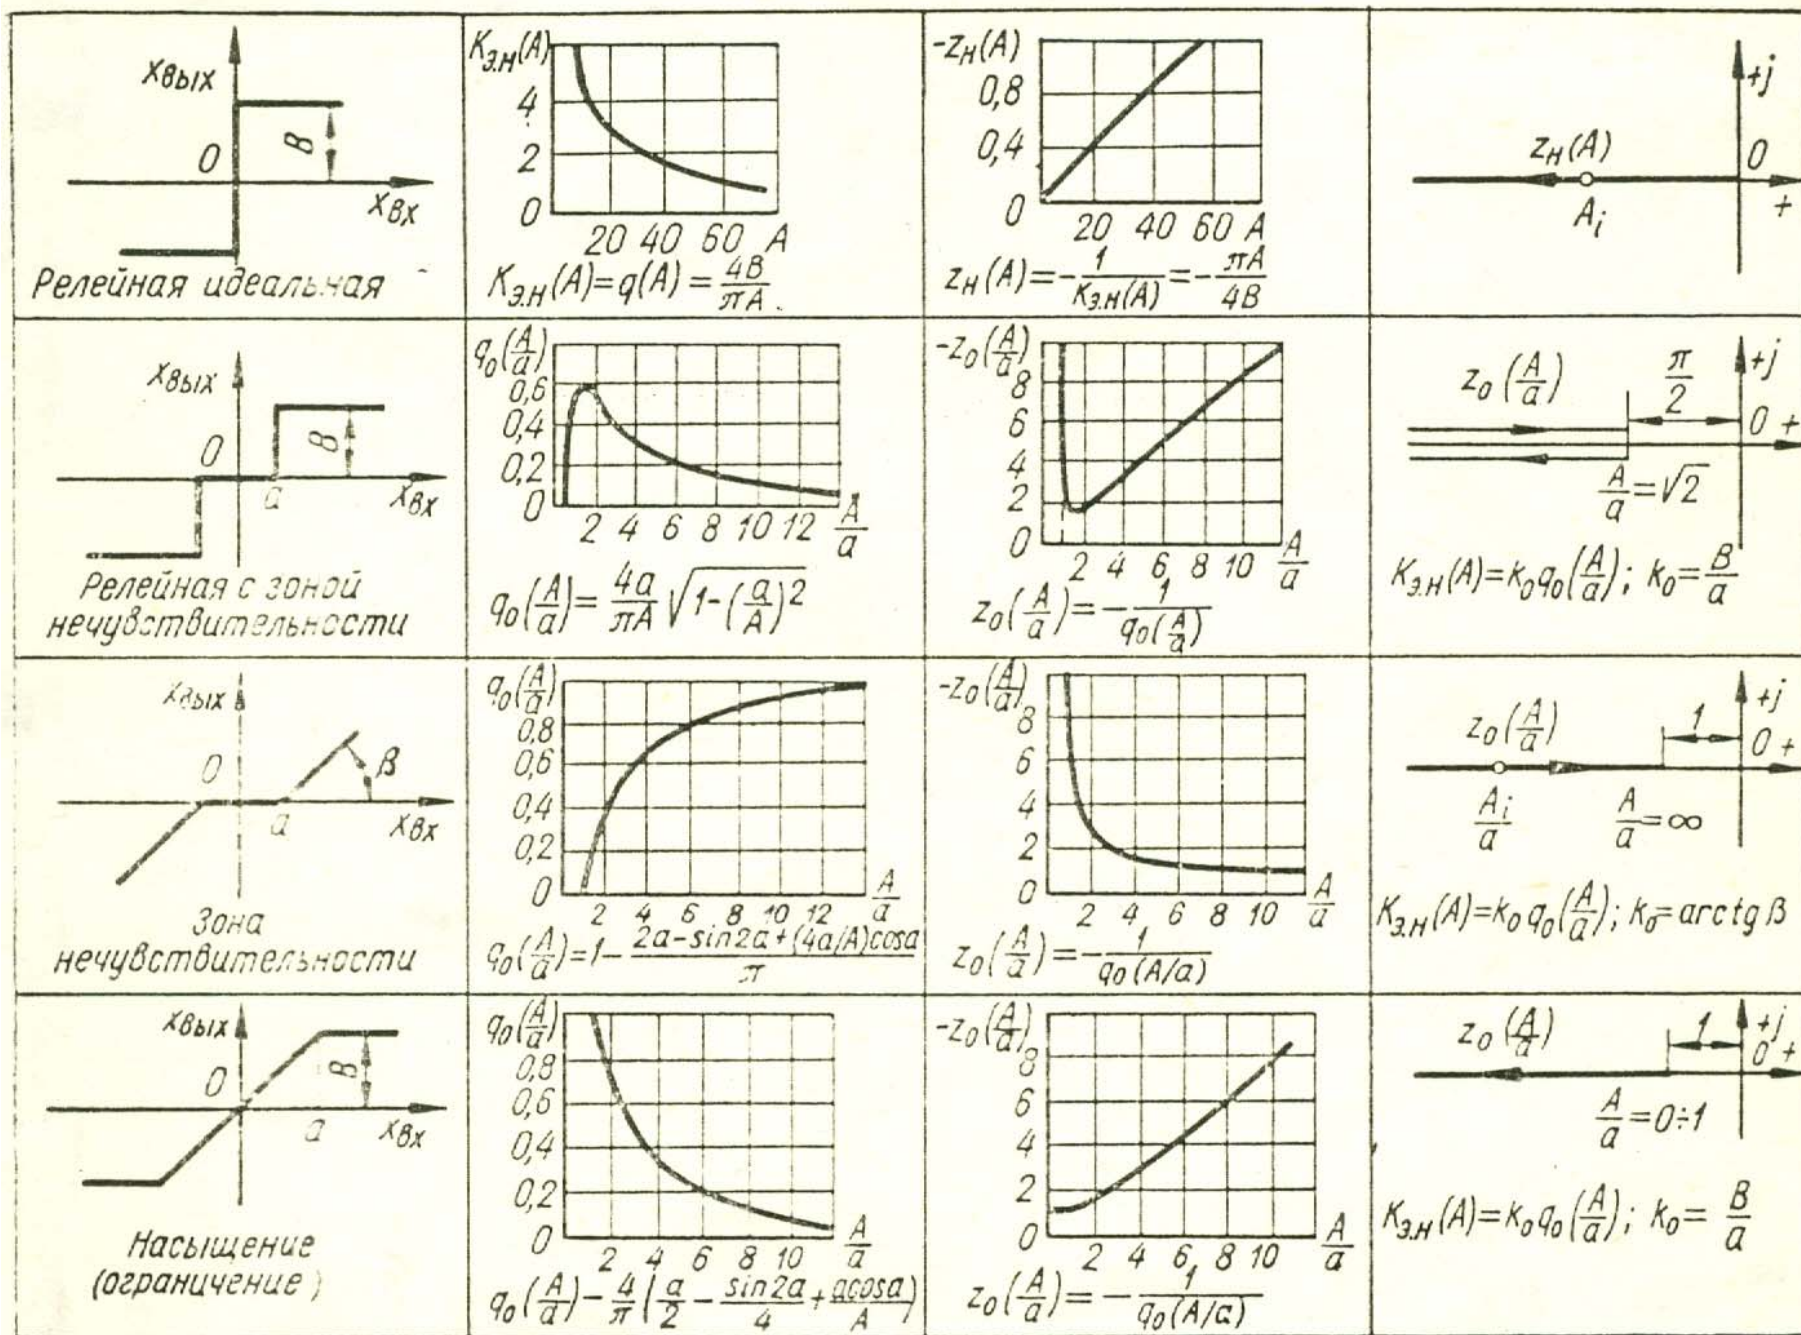 xвых
0
B
xвх
Релейная идеальная
Kэ.н(A)
4
2
0
20 40 60 A
Kэ.н(A)=q(A)=4B/πA
-zн(A)
0,8
0,4
0
20 40 60 A
zн(A)=-1/Kэ.н(A)=-πA/4B
+j
zн(A)
0
Ai
+
xвых
0
B
a
xвх
Релейная с зоной
нечувствительности
q0(A/a)
0,6
0,4
0,2
0
2 4 6 8 10 12 A/a
q0(A/a)=4a/πA √1-(a/A)²
-z0(A/a)
8
6
4
2
0
2 4 6 8 10 A/a
z0(A/a)=-1/q0(A/a)
+j
z0(A/a)
π/2
0 +
A/a=√2
Kэ.н(A)=k0q0(A/a); k0=B/a
xвых
0
β
a
xвх
Зона
нечувствительности
q0(A/a)
0,8
0,6
0,4
0,2
0
2 4 6 8 10 12 A/a
q0(A/a)=1-2a-sin2a+(4a/A)cosa/π
-z0(A/a)
8
6
4
2
0
2 4 6 8 10 A/a
z0(A/a)=-1/q0(A/a)
+j
z0(A/a)
1
0 +
Ai/a
A/a=∞
Kэ.н(A)=k0q0(A/a); k0=arctgβ
xвых
0
B
a
xвх
Насыщение
(ограничение)
q0(A/a)
0,8
0,6
0,4
0,2
0
2 4 6 8 10 A/a
q0(A/a)-4/π(a/2-sin2a/4+acosa/A)
-z0(A/a)
8
6
4
2
0
2 4 6 8 10 A/a
z0(A/a)=-1/q0(A/a)
+j
z0(A/a)
1
0 +
A/a=0÷1
Kэ.н(A)=k0q0(A/a); k0=B/a